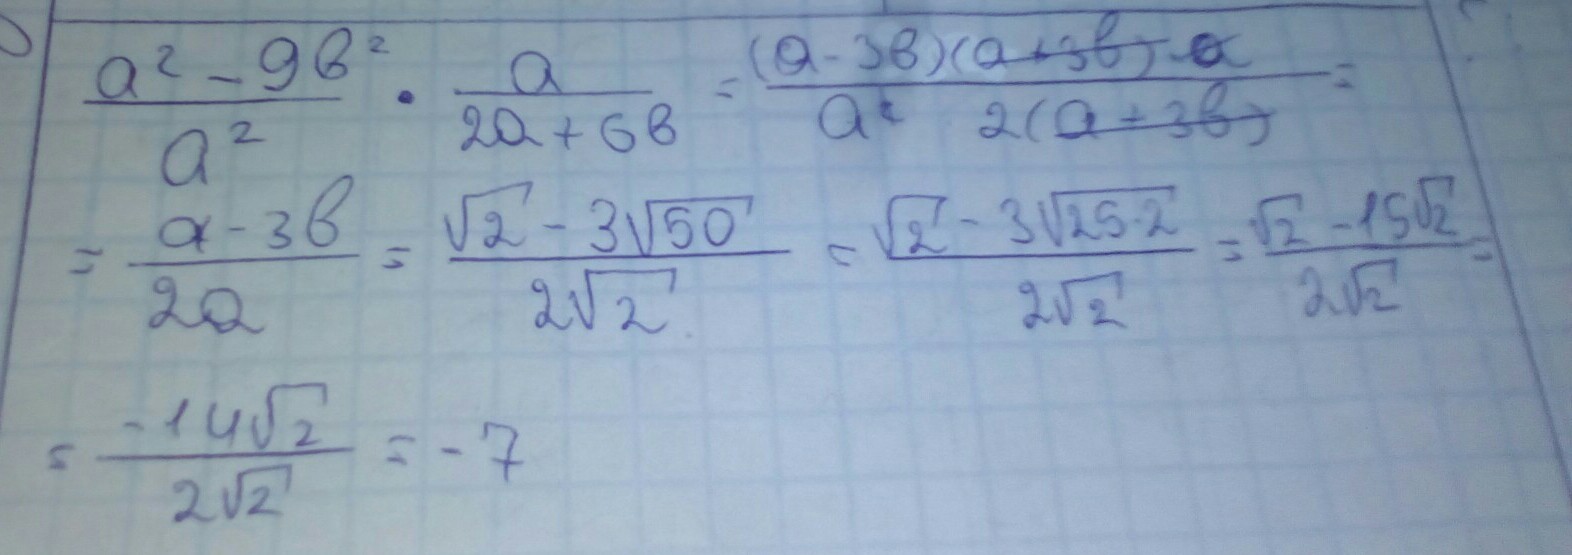 a² - 9b² / a² · a / 2a + 6b = (a - 3b)(a + 3b) · a / a² 2(a + 3b) =
= a - 3b / 2a = √2 - 3√50 / 2√2 = √2 - 3√25·2 / 2√2 = √2 - 15√2 / 2√2 =
= -14√2 / 2√2 = -7